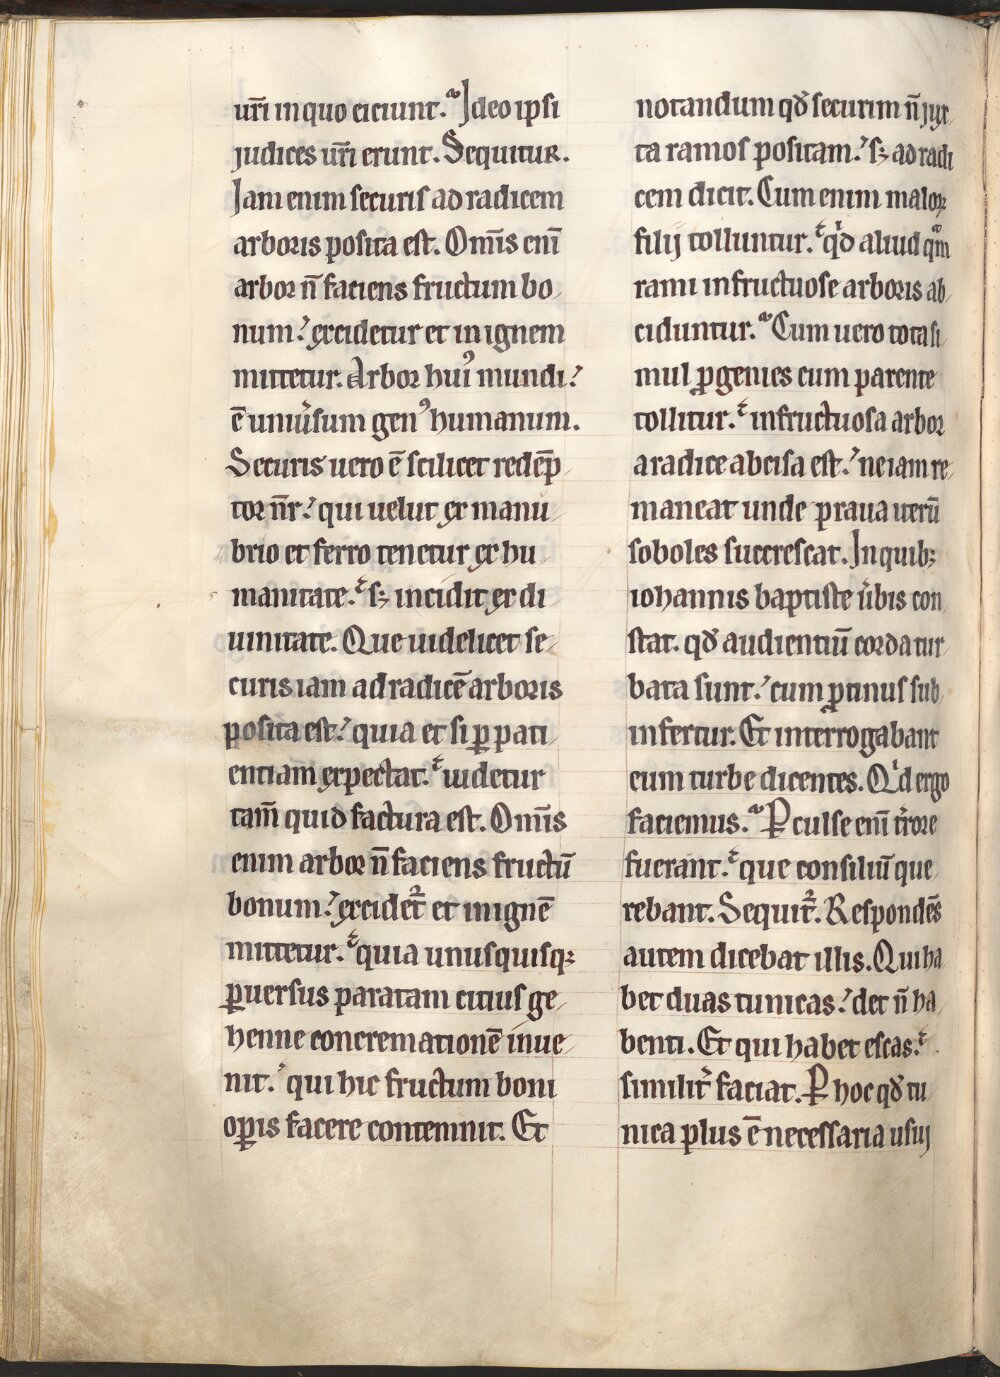 ur̄i in quo eiciunt. Ideo ipsi
judices ur̄i erunt. Sequitur.
Jam enim securis ad radicem
arboris posita est. Om̄is eni̅
arbor n̄ faciens fructum bo
num? excidetur et in ignem
mittetur. Arbor hui᾿ mundi?
ē uniūsum gen᾿ humanum.
Securis uero ē scilicet redēp
tor nr̄? qui uelut ex manu
brio et ferro tenetur ex hu
manitate. sꝫ incidit ex di
uinitate. Que uidelicet se
curis iam ad radicē arboris
posita est? quia et si ꝑ pati
entiam expectat. uidetur
tam̄ quid factura est. Om̄is
enim arbor n̄ faciens fructū
bonum? excidet᷑ et in ignē
mittetur. quia unusquisqꝫ
ꝑuersus paratam citius ge
henne concremationē inue
nit. qui hic fructum boni
oꝑis facere contemnit. Et
notandum qđ securim n̄ jux
ta ramos positam? sꝫ ad radi
cem dicit. Cum enim maloꝝ
filij tolluntur. qͥd aliud qᵃm
rami infructuose arboris ab
ciduntur. Cum uero tota si
mul ꝓgenies cum parente
tollitur. infructuosa arbor
a radice abcisa est? ne iam re
maneat unde praua iterū
soboles succrescat. In quibꝫ
iohannis baptiste ūbis con
stat. qđ audientiū corda tur
bata sunt? cum ꝓtinus sub
infertur. Et interrogabant
eum turbe dicentes. Qͥd ergo
faciemus. Ꝑculse eni̅ t̄rore
fuerant. que consiliū que
rebant. Sequit᷑. Respondēs
autem dicebat illis. Qui ha
bet duas tunicas? det n̄ ha
benti. Et qui habet escas.
similit̄ faciat. Ꝑ hoc qđ tu
nica plus ē necessaria usui